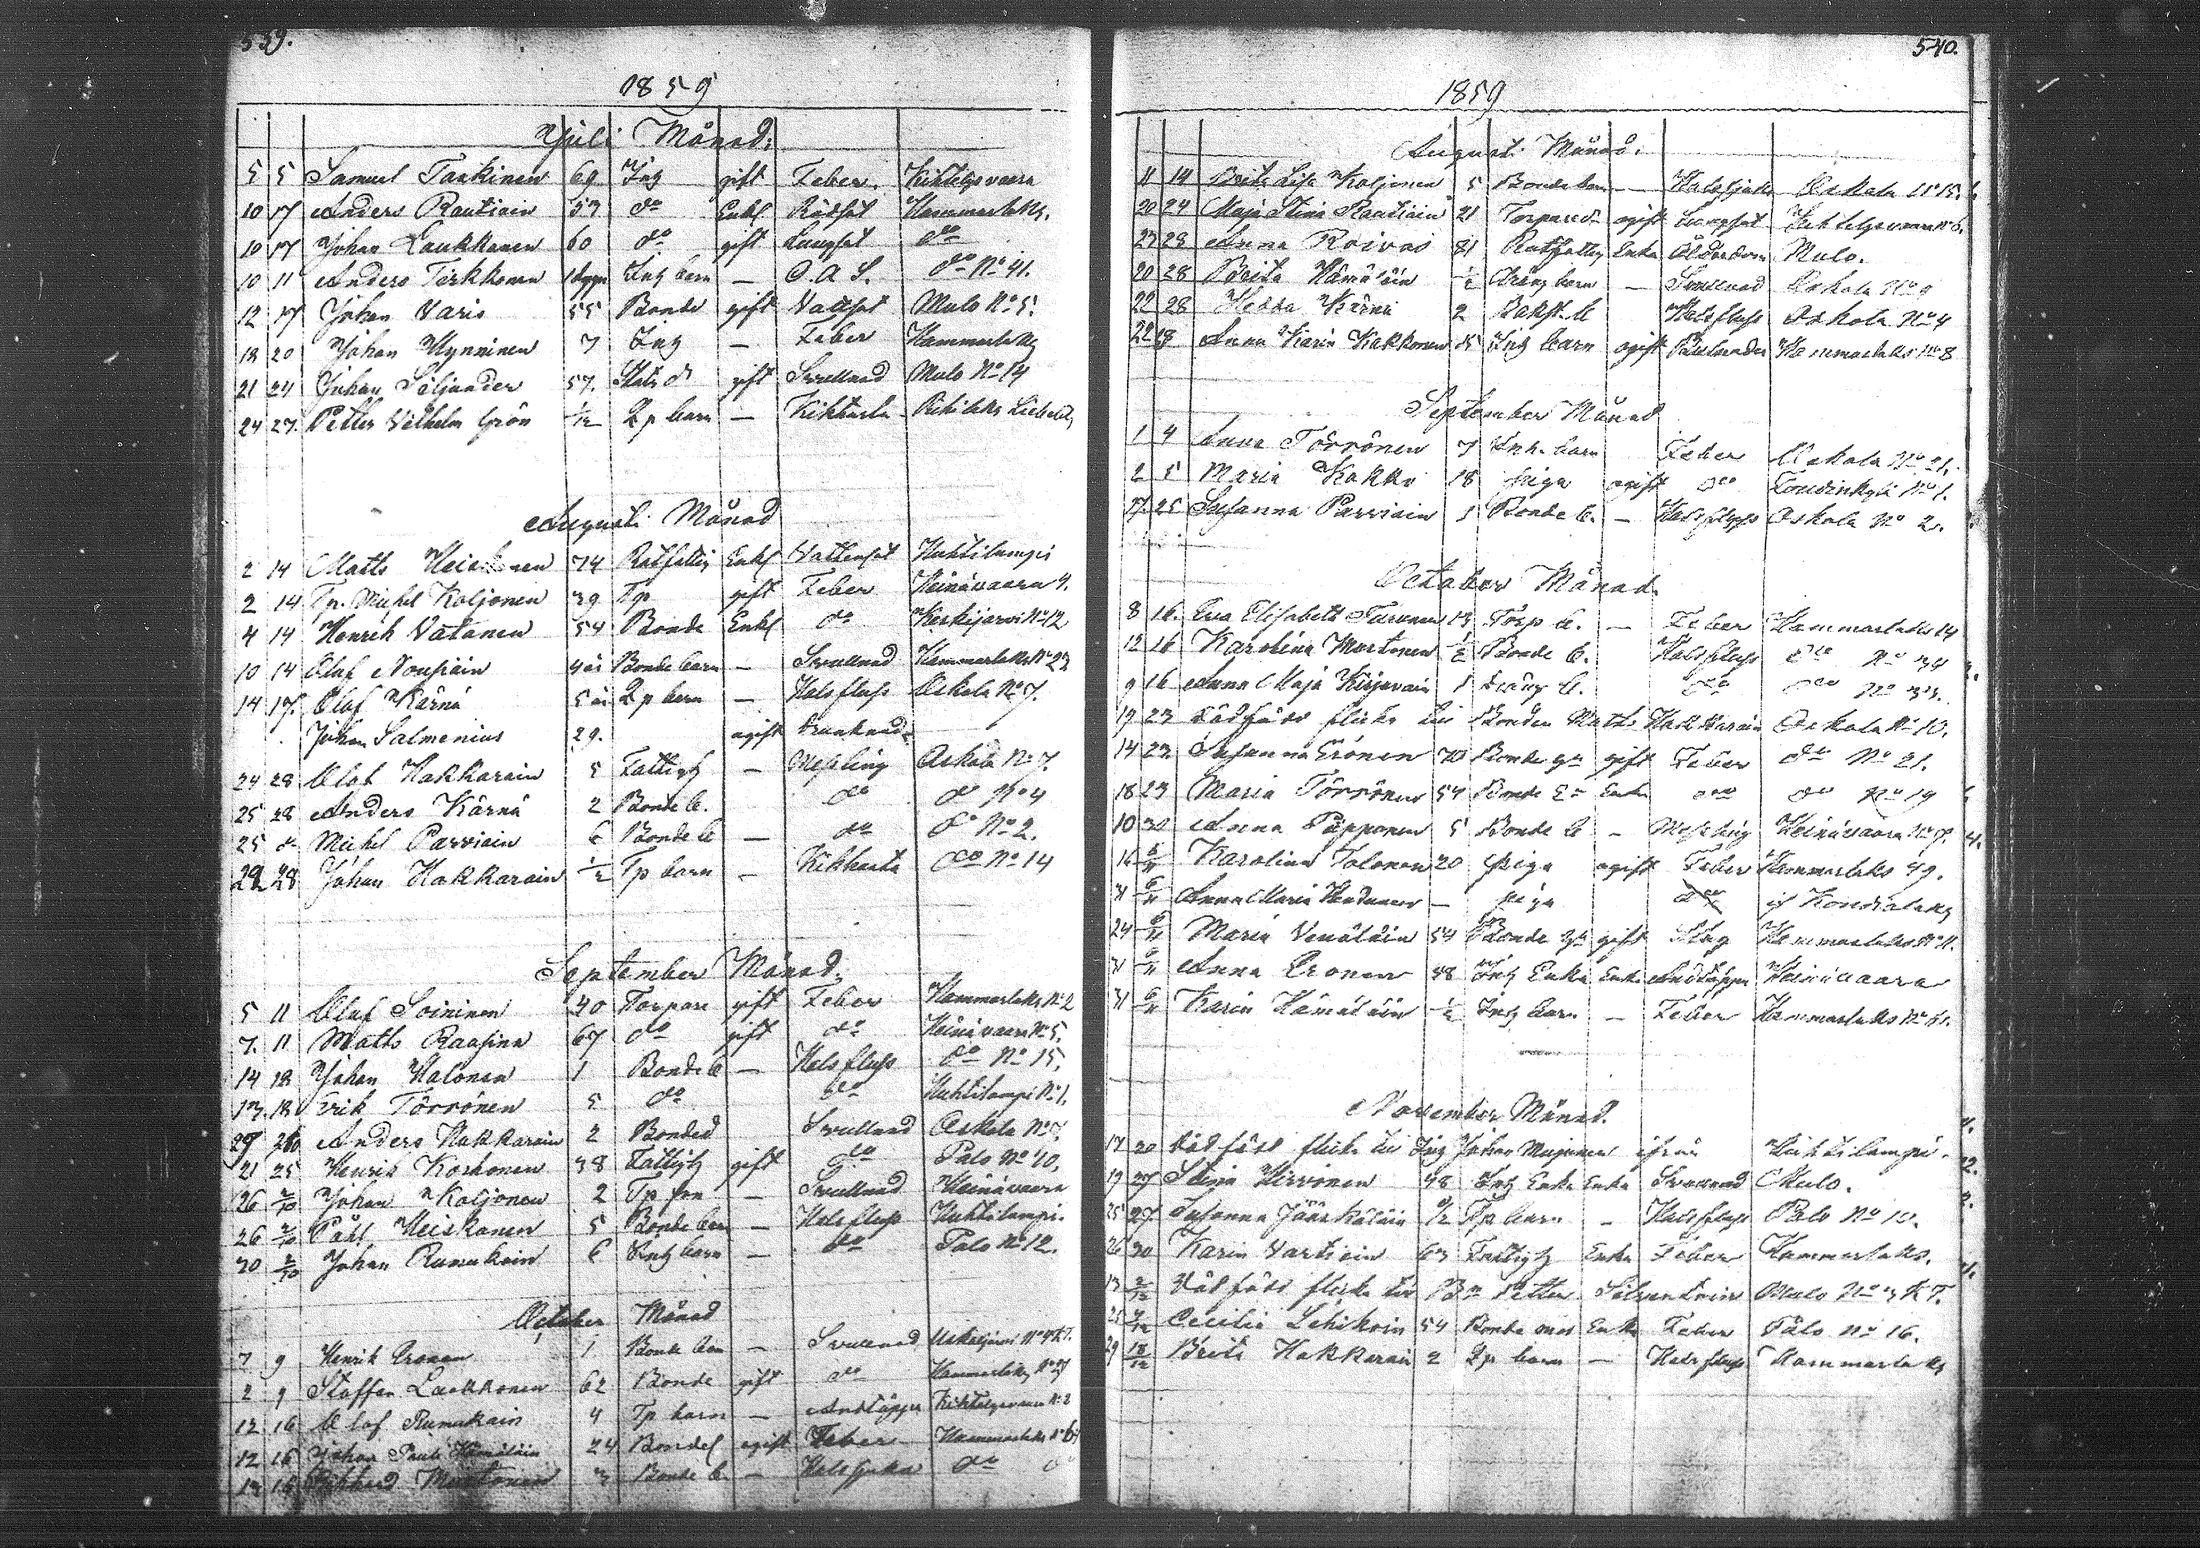 539.
1859
Juli Månad:
5 5 Samuel Tankinen 69 Inh gift Feber. Kihtelysvaara
10 17 Anders Rautiain 53 do Enkl Rödsot Hammarlaks.
10 17 Johan Laukkanen 60 do gift Lungsot do
10 11 Anders Tirkkonen Inh barn — O. A. S. do No 41.
12 17 Johan Varis 55 Bonde gift Vattsot Mulo No 5.
18 20 Johan Hynninen 7 Inh — Feber Hammarlaks
21 24 Johan Siljander 57. gift Svullnad Mulo No 14
24 27. Petter Vilhelm Grön 1/12 Lp barn — Kikhosta
Augusti Månad
2 14 Matts Heiskanen 74 Rotfattig Enkl Vattensot Huhtilampi
2 14 Tp. Michel Koljonen 39 Tp gift Feber Heinävaara 9.
4 14 Henrik Vatanen 54 Bonde Enkl do Keskijärvi No 12
10 14 Olof Nousiain 4 år Bonde barn — Svullnad Hammarlaks No 23
14 17. Olof Kärnä 5 år Lp barn — Halsfluss Oskola No 7.
Johan Salmenius 29. ogift drunknad
24 28 Olof Hakkarain 5 Fattigh — Messling Oskola No 7.
25 28 Anders Kärnä 2 Bonde b. do do No 4
25 do Michel Parviain 6 Bonde b — do do No 2.
22 28 Johan Hakkarain 1/2 Tp barn — Kikhosta do No 14
September Månad.
5 11 Olof Soininen 40 Torpare gift Feber Hammarlaks No 2
7. 11 Matts Raasina 67 do gift do Heinävaara No 5.
14 18 Johan Halonen 1 Bonde b — Halsfluss do No 15,
13. 18 Erik Törrönen 5 do do Huhtilampi No 1.
29 Anders Hakkarain 2 Bonde Svullnad Oskola No 7.
21 25 Henrik Korhonen 38 Fattigh gift do Palo No 10.
26 2/10 Johan Koljonen 2 Tp son — Svullnad Heinävaara
26 2/10 Påhl Heiskanen 5 Bonde barn — Halsfluss Huhtilampi.
30 2/10 Johan Runukain 6 Inh barn — do Palo No 12.
October Månad
7 9 Henrik Eronen 1 Bonde barn — Svullnad
2 9 Staffan Laukkonen 62 Bonde gift do Hammarlaks No 27
12 16 Olof Runukain 4 Tp barn — Andtäppa Kihtelysvaara No 2
12 16 Johan Pauli Hämäläin 24 Bondes ogift Feber Hammarlaks No 6
13 16 Rikhard Martonen 3 Bonde b. — Halssjuka do do
540.
1859
Augusti Månad.
11 14 Brita Lisa Koljonen 5 Bonde barn — Halssjuka Oskola No 15.
20 24 Maja Stina Rautiain 21 Torpare d. ogift Lungsot Kihtelysvaara No 6.
23 28 Anna Roivas 81 Rotfattig Enka Ålderdom Mulo.
20 28 Brita Hämäläin 1/2 Dräng barn — Svullnad Oskola No 9
22 28 Hedda Kärnä 2 Halsfluss Oskola No 4
22 28 Anna Karin Kakkonen 15 Inh barn ogift Hammarlaks No 8
September Månad
1 4 Anna Törrönen 7 Inh. barn Feber Oskola No 21.
2 5 Maria Kokko 18 piga ogift do No 1.
17. 25 Susanna Parviain 1 Bonde b. — Halsfluss Oskola No 2.
October Månad.
8 16. Eva Elisabeth Turunen 13 Torp b. — Feber Hammarlaks 14
12 16 Karolina Martonen 1/2 Bonde b. Halsfluss do No 34
9 16 Anna Maja Kirjavain 1 Dräng b. do do No 33.
19 23 Dödfödd flicka till Bonden Matts Hakkarain Oskola No 10.
14 23 Susanna Eronen 70 Bonde gift Feber do No 21.
18 23 Maria Törrönen 54 Bonde E. Enka do do No 19
10 30 Anna Papponen 5 Bonde b — Messling Heinävaara No 7.
16 6/11 Karolina Tolonen 20 piga ogift Feber Hammarlaks 49.
31 6/11 Anna Maria — piga do if Kondialaks
24 6/11 Maria Venäläin 54 Bonde gift Slag Hammarlaks No 11.
31 6/11 Anna Eronen 48 Inh Enka Enka Andtäppa Heinävaara
31 6/11 Karin Hämäläin 1/2 Inh barn — Feber Hammarlaks No 61.
November Månad.
17 20 Dödfödd flicka till Inh Johan Majoinen ifrån Huhtilampi.
19 27 Stina Hirvonen 48 Inh Enka Enka Svullnad Mulo.
25 27 Susanna Jääskeläin 1/2 Tp barn — Halsfluss Palo No 10.
26 30 Karin Vartiain 63 Fattigh Enka Feber Hammarlaks.
13 2/12 Dödfödd flicka till Bn Petter Mulo No 3 K. T.
25 4/12 Cecilia Lehikoin 54 Bonde mor Enka Feber Palo No 16.
29 18/12 Brita Hakkarain 2 Lp barn — Halsfluss Hammarlaks